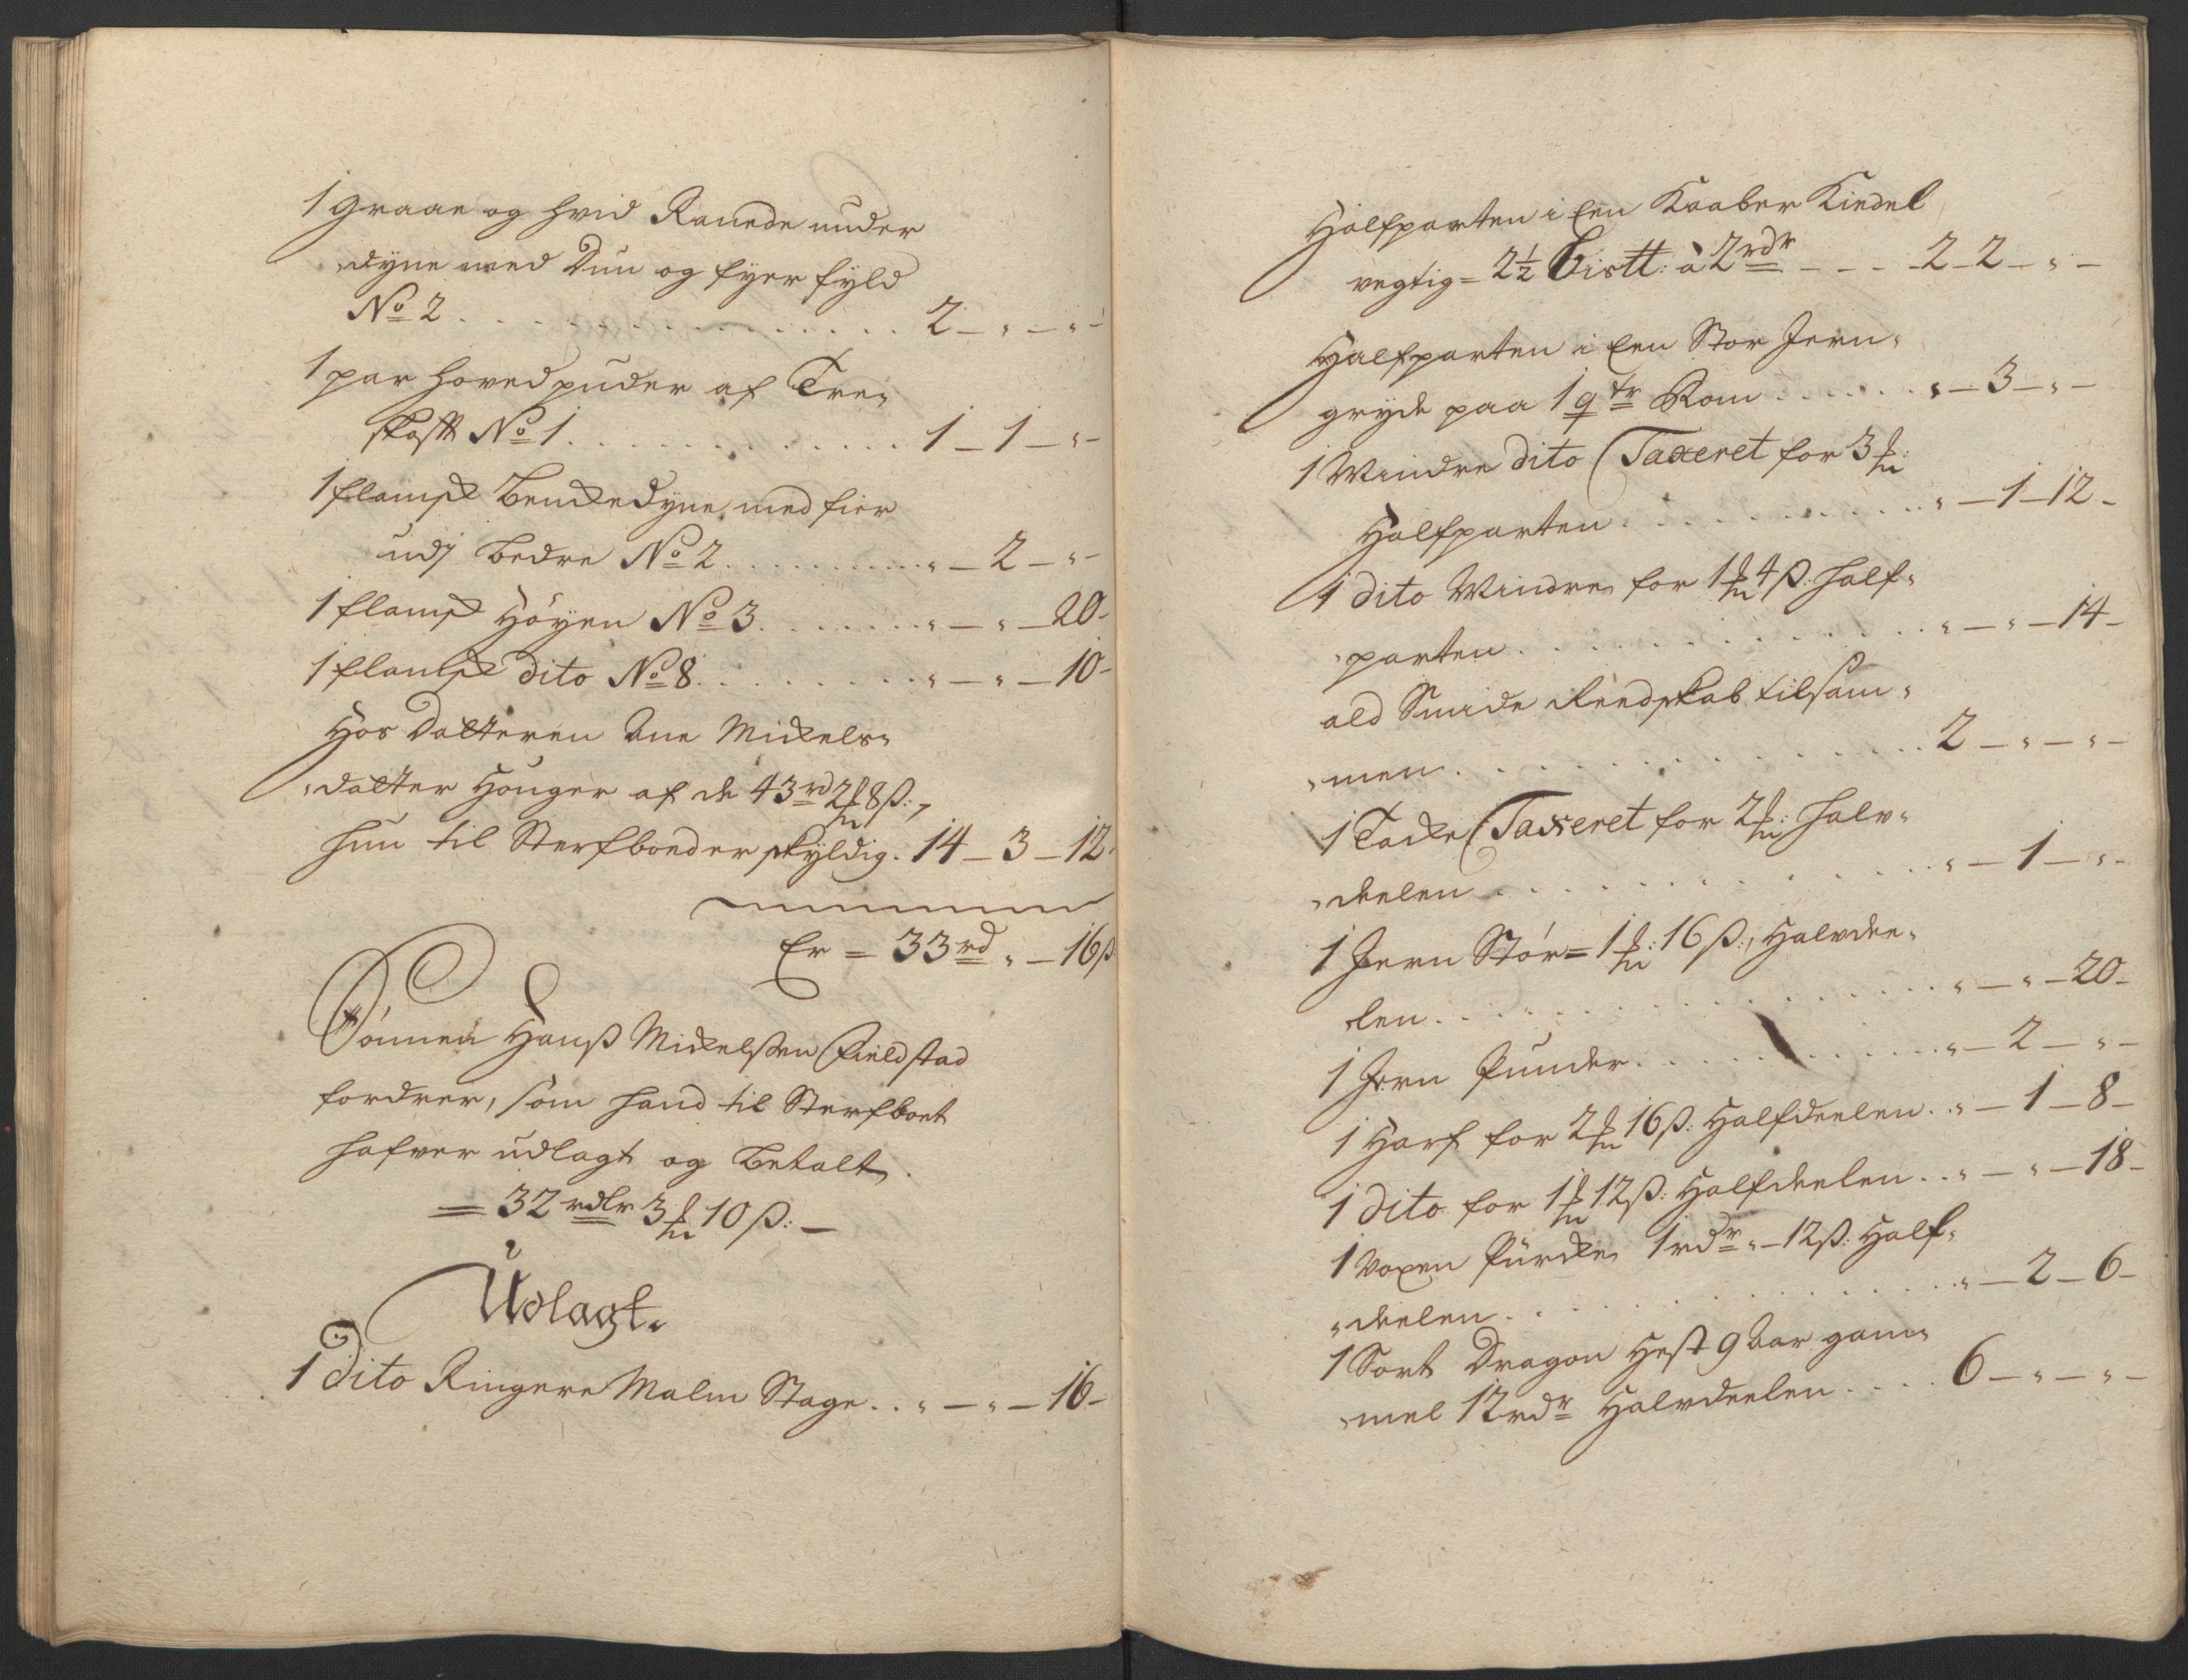 1 graae og hvid Ranede under
dyne med Dun og fyer fyld
No 2 . . . . . . . . . . . . . . . . 2 — " — " —
1 par hovedpuder af Tre„
skaftt No 1 . . . . . . . . . . . . 1 — 1 — " —
1 flamsk Benckedyne med fier
udj bedre No 2 . . . . . . . . . " — 2 — " —
1 flamsk Høyen No 3 . . . . . . . " — " — 20 —
1 flamsk dito No 8 . . . . . . . . " — " — 10 —
Hos datteren Ane Mickels„
„datter Houger af de 43 rd 2 f 8 ß:,
hun til Sterfboed er skyldig . 14 — 3 — 12 .
Er = 33 rd " — 16 ß
Sønnen Hanß Mickelßen Fieldstad
fordrer, som hand til Sterfboet
hafver udlagt og betalt .
= 32 rdlr 3 f 10 ß: —
Udlagt.
1 dito Ringere Malm Stage . . " — " — 16 —
Halfparten i Een Kaaber Kiedel
vegtig = 2½ Bistt: à 2 rdr — — — 2 — 2 — " —
Halfparten i Een Stor Jern„
gryde paa 1 qtr Rom . . . . . . " — 3 — " —
1 Mindre dito (Taxeret for 3 f:
Halfparten . . . . . . . . . . . . " — 1 — 12 —
1 dito Mindre for 1 f 4 ß: half„
„parten . . . . . . . . . . . . . . " — " — 14 —
ald Smide Reedskab tilsam„
„men . . . . . . . . . . . . . . . . 2 — " — " —
1 Tacke (Taxeret for 2 f: halv„
„deelen . . . . . . . . . . . . . . " — 1 — " —
1 Jern Stör = 1 f: 16 ß:, Halvdee„
len . . . . . . . . . . . . . . . . " — " — 20 —
1 Jern Punder . . . . . . . . . . . " — 2 — " —
1 Harf for 2 f 16 ß: Halfdeelen . . " — 1 — 8 —
1 dito for 1 f 12 ß: Halfdeelen . . " — " — 18 —
1 voxen Pürcke 1 rdr " — 12 ß: Half„
„deelen . . . . . . . . . . . . . . " — 2 — 6 —
1 Sort Dragon Hest 9 Aar gam„
„mel 12 rdr Halvdeelen . . . . 6 — " — " —